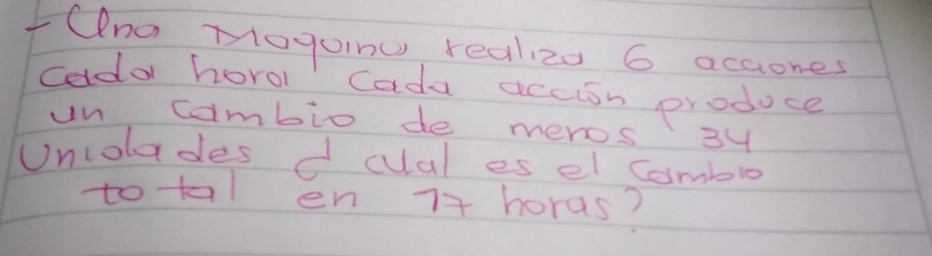 - Una Maquina realiza 6 acciones
cada hora cada acción produce
un cambio de menos 34
Unidades ¿ cual es el cambio
total en 17 horas?